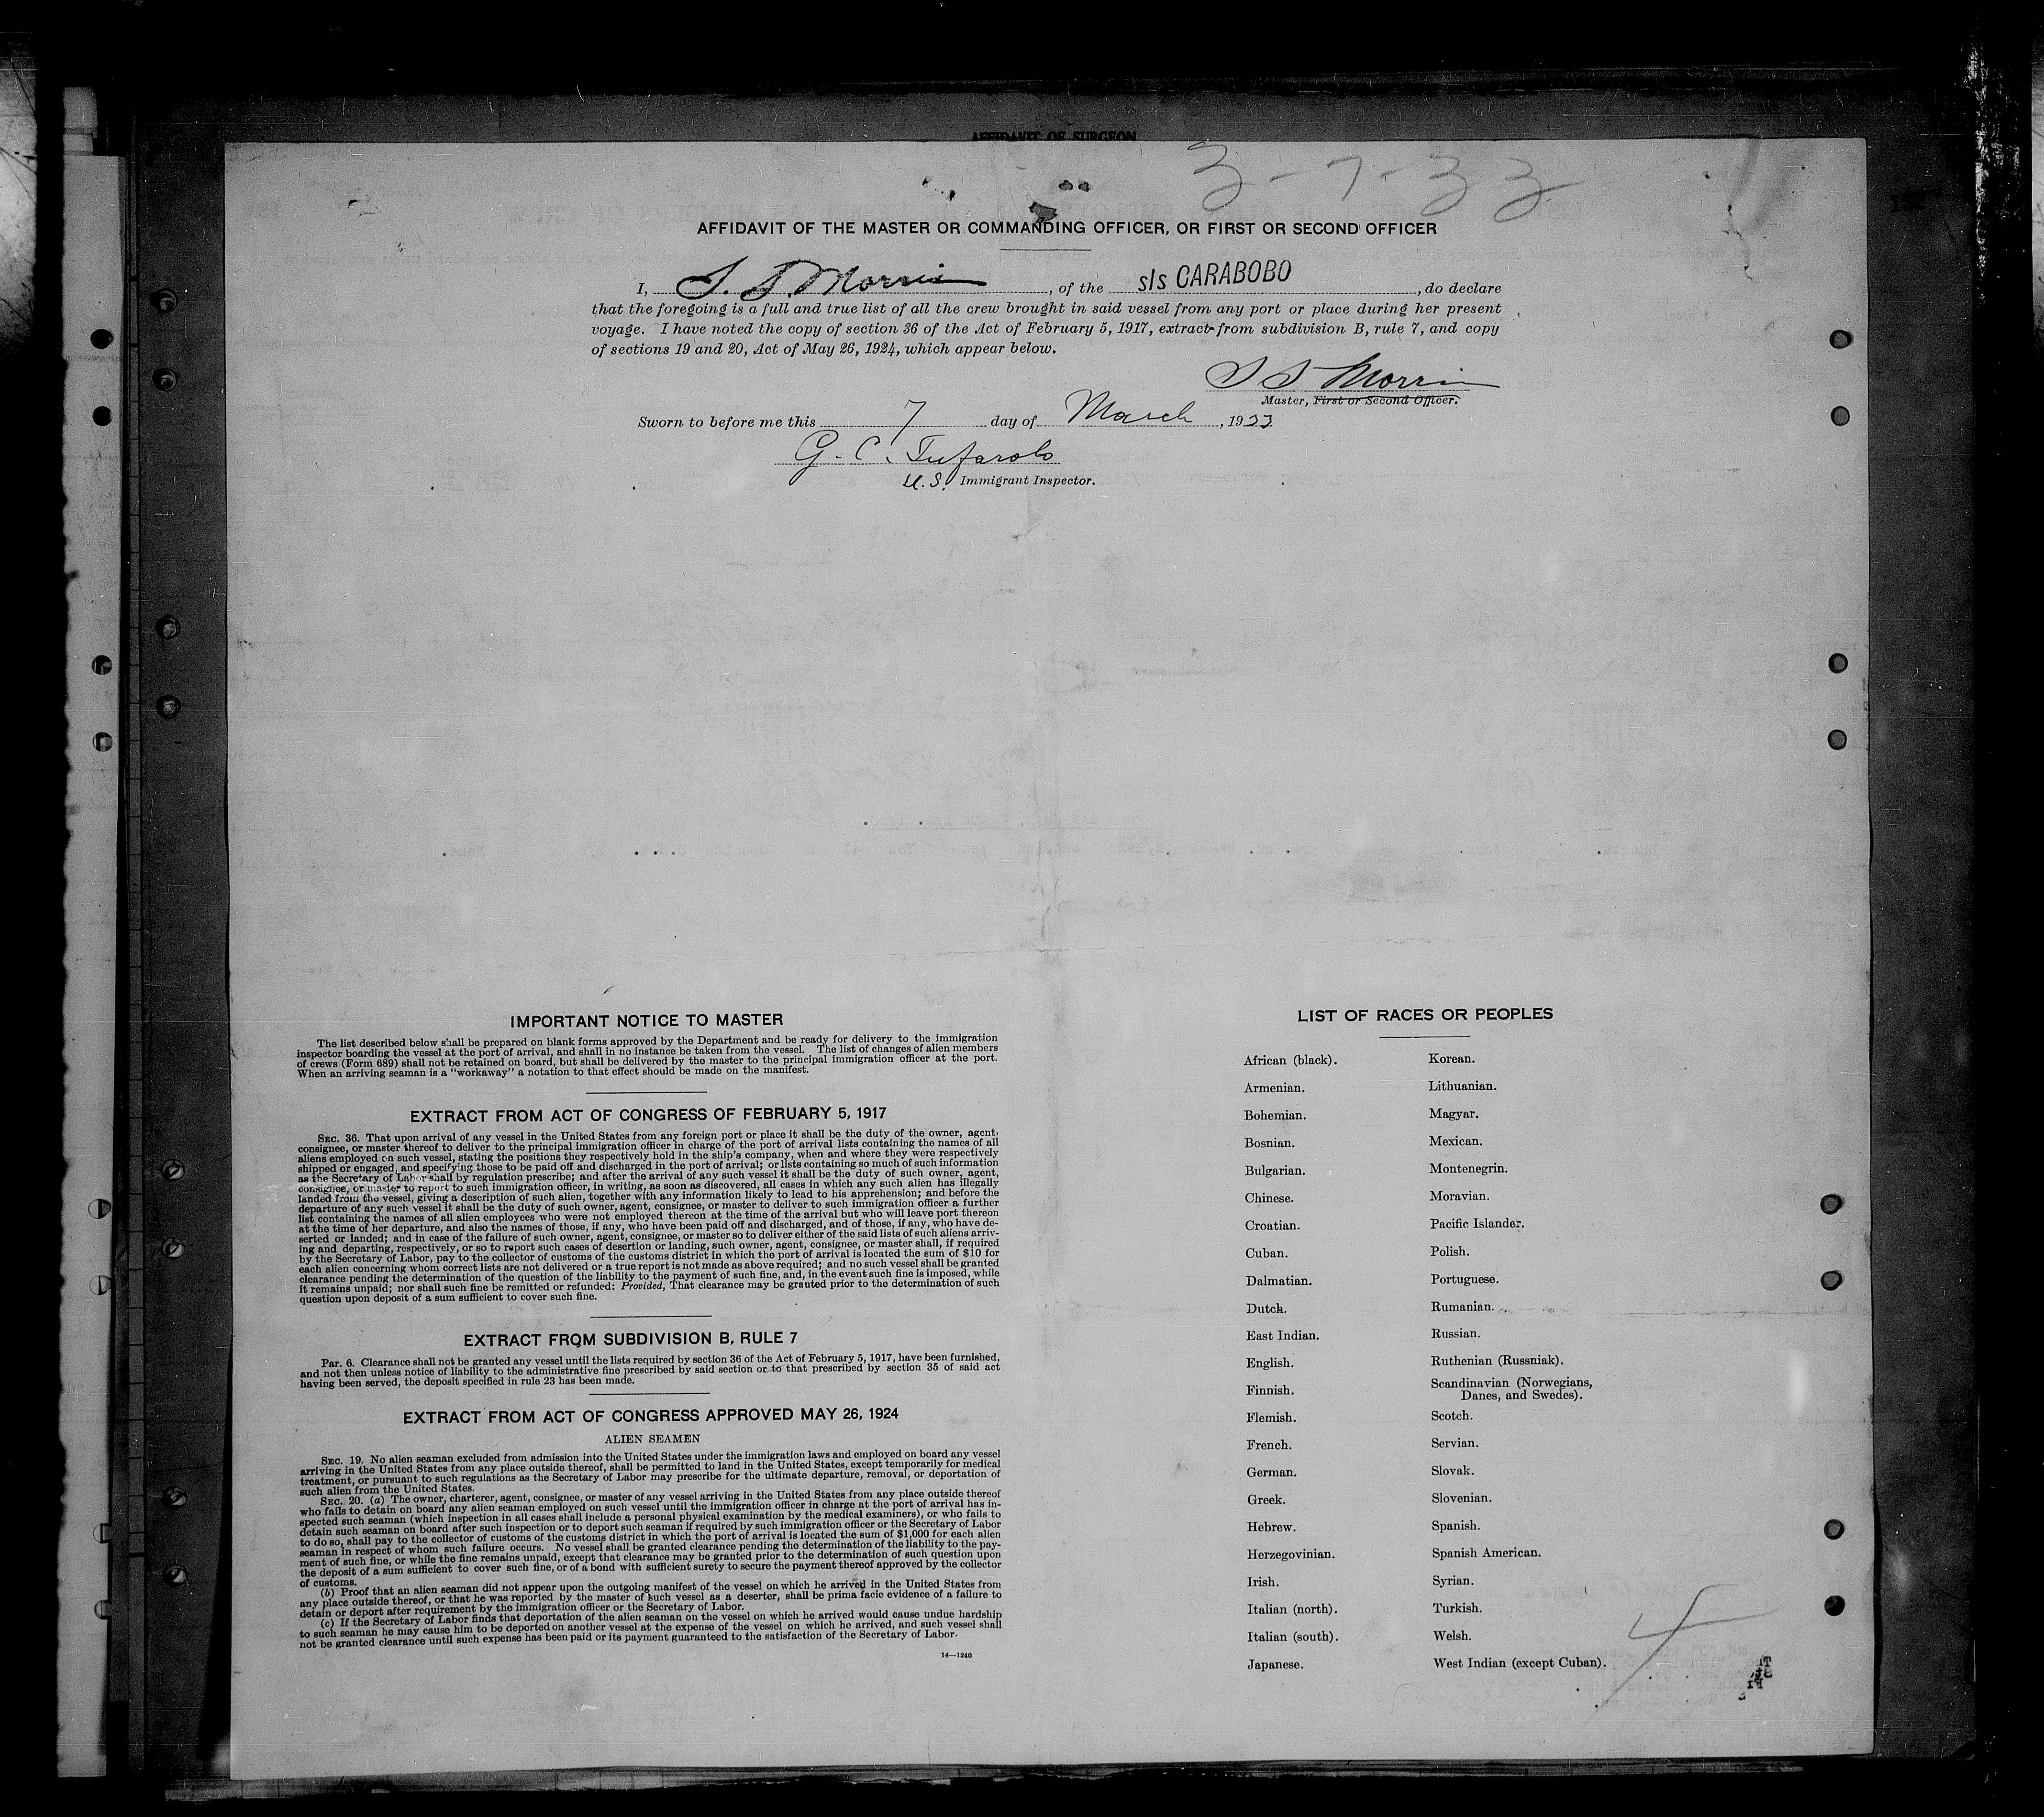 AFFIDAVIT OF SURGEON
3-7-33
AFFIDAVIT OF THE MASTER OR COMMANDING OFFICER, OR FIRST OR SECOND OFFICER
I, S. S. Morris, of the s/s CARABOBO, do declare
that the foregoing is a full and true list of all the crew brought in said vessel from any port or place during her present
voyage. I have noted the copy of section 36 of the Act of February 5, 1917, extract from subdivision B, rule 7, and copy
of sections 19 and 20, Act of May 26, 1924, which appear below.
S S Morris
Master, First or Second Officer.
Sworn to before me this 7 day of March, 1933
G. C. Tufarolo
U.S. Immigrant Inspector.
IMPORTANT NOTICE TO MASTER
The list described below shall be prepared on blank forms approved by the Department and be ready for delivery to the immigration
inspector boarding the vessel at the port of arrival, and shall in no instance be taken from the vessel. The list of changes of alien members
of crews (Form 689) shall not be retained on board, but shall be delivered by the master to the principal immigration officer at the port.
When an arriving seaman is a "workaway" a notation to that effect should be made on the manifest.
EXTRACT FROM ACT OF CONGRESS OF FEBRUARY 5, 1917
SEC. 36. That upon arrival of any vessel in the United States from any foreign port or place it shall be the duty of the owner, agent,
consignee, or master thereof to deliver to the principal immigration officer in charge of the port of arrival lists containing the names of all
aliens employed on such vessel, stating the positions they respectively hold in the ship's company, when and where they were respectively
shipped or engaged, and specifying those to be paid off and discharged in the port of arrival; or lists containing so much of such information
as the Secretary of Labor shall by regulation prescribe; and after the arrival of any such vessel it shall be the duty of such owner, agent,
consignee, or master to report to such immigration officer, in writing, as soon as discovered, all cases in which any such alien has illegally
landed from the vessel, giving a description of such alien, together with any information likely to lead to his apprehension; and before the
departure of any such vessel it shall be the duty of such owner, agent, consignee, or master to deliver to such immigration officer a further
list containing the names of all alien employees who were not employed thereon at the time of the arrival but who will leave port thereon
at the time of her departure, and also the names of those, if any, who have been paid off and discharged, and of those, if any, who have de-
serted or landed; and in case of the failure of such owner, agent, consignee, or master so to deliver either of the said lists of such aliens arriv-
ing and departing, respectively, or so to report such cases of desertion or landing, such owner, agent, consignee, or master shall, if required
by the Secretary of Labor, pay to the collector of customs of the customs district in which the port of arrival is located the sum of $10 for
each alien concerning whom correct lists are not delivered or a true report is not made as above required; and no such vessel shall be granted
clearance pending the determination of the question of the liability to the payment of such fine, and, in the event such fine is imposed, while
it remains unpaid; nor shall such fine be remitted or refunded: Provided, That clearance may be granted prior to the determination of such
question upon deposit of a sum sufficient to cover such fine.
EXTRACT FROM SUBDIVISION B, RULE 7
Par. 6. Clearance shall not be granted any vessel until the lists required by section 36 of the Act of February 5, 1917, have been furnished,
and not then unless notice of liability to the administrative fine prescribed by said section or to that prescribed by section 35 of said act
having been served, the deposit specified in rule 23 has been made.
EXTRACT FROM ACT OF CONGRESS APPROVED MAY 26, 1924
ALIEN SEAMEN
SEC. 19. No alien seaman excluded from admission into the United States under the immigration laws and employed on board any vessel
arriving in the United States from any place outside thereof, shall be permitted to land in the United States, except temporarily for medical
treatment, or pursuant to such regulations as the Secretary of Labor may prescribe for the ultimate departure, removal, or deportation of
such alien from the United States.
SEC. 20. (a) The owner, charterer, agent, consignee, or master of any vessel arriving in the United States from any place outside thereof
who fails to detain on board any alien seaman employed on such vessel until the immigration officer in charge at the port of arrival has in-
spected such seaman (which inspection in all cases shall include a personal physical examination by the medical examiners), or who fails to
detain such seaman on board after such inspection or to deport such seaman if required by such immigration officer or the Secretary of Labor
to do so, shall pay to the collector of customs of the customs district in which the port of arrival is located the sum of $1,000 for each alien
seaman in respect of whom such failure occurs. No vessel shall be granted clearance pending the determination of the liability to the pay-
ment of such fine, or while the fine remains unpaid, except that clearance may be granted prior to the determination of such question upon
the deposit of a sum sufficient to cover such fine, or of a bond with sufficient surety to secure the payment thereof approved by the collector
of customs.
(b) Proof that an alien seaman did not appear upon the outgoing manifest of the vessel on which he arrived in the United States from
any place outside thereof, or that he was reported by the master of such vessel as a deserter, shall be prima facie evidence of a failure to
detain or deport after requirement by the immigration officer or the Secretary of Labor.
(c) If the Secretary of Labor finds that deportation of the alien seaman on the vessel on which he arrived would cause undue hardship
to such seaman he may cause him to be deported on another vessel at the expense of the vessel on which he arrived, and such vessel shall
not be granted clearance until such expense has been paid or its payment guaranteed to the satisfaction of the Secretary of Labor.
14—1240
LIST OF RACES OR PEOPLES
African (black).
Armenian.
Bohemian.
Bosnian.
Bulgarian.
Chinese.
Croatian.
Cuban.
Dalmatian.
Dutch.
East Indian.
English.
Finnish.
Flemish.
French.
German.
Greek.
Hebrew.
Herzegovinian.
Irish.
Italian (north).
Italian (south).
Japanese.
Korean.
Lithuanian.
Magyar.
Mexican.
Montenegrin.
Moravian.
Pacific Islander.
Polish.
Portuguese.
Rumanian.
Russian.
Ruthenian (Russniak).
Scandinavian (Norwegians,
Danes, and Swedes).
Scotch.
Servian.
Slovak.
Slovenian.
Spanish.
Spanish American.
Syrian.
Turkish.
Welsh.
West Indian (except Cuban).